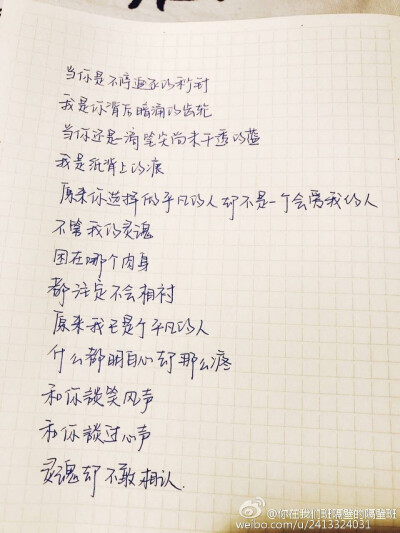 当你是不停追逐的秒针
我是你背后暗涌的齿轮
当你还是滴笔尖尚未干透的蓝
我是纸背上的痕
原来你选择做平凡的人却不是一个会爱我的人
不管我的灵魂
困在哪个肉身
都注定不会相衬
原来我已是个平凡的人
什么都明白心却那么疼
和你談笑风声
和你談过心声
灵魂却不敢相认.
@你在我们班隔壁的隔壁班
weibo.com/u/2413324031